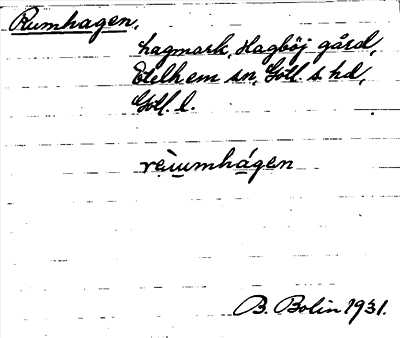 Rumhagen,
hagmark, Hagböj gård,
Etelhem sn, Gotl. s. hd,
Gotl. l.
reùumhágen
B. Bolin 1931.